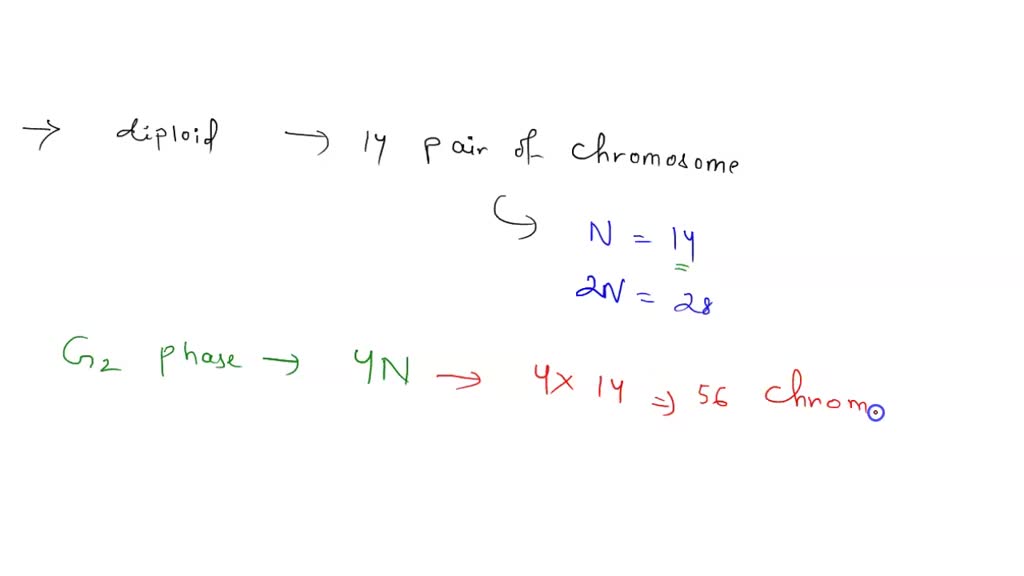 → diploid → 14 pair of chromosome
↳ N = 14
2N = 28
G2 phase → 4N → 4x 14 => 56 Chrom